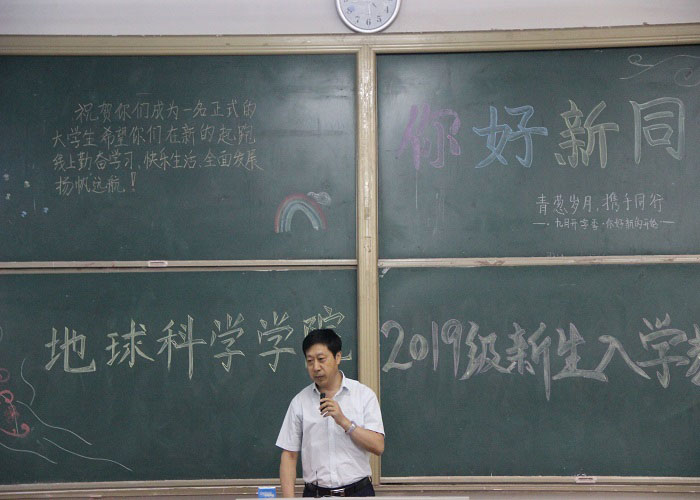 祝贺你们成为一名正式的
大学生希望你们在新的起跑
线上勤奋学习、快乐生活、全面发展
扬帆远航！
你好新同
青葱岁月，携手同行
九月开学季·你好新的开始
地球科学学院
2019级新生入学教